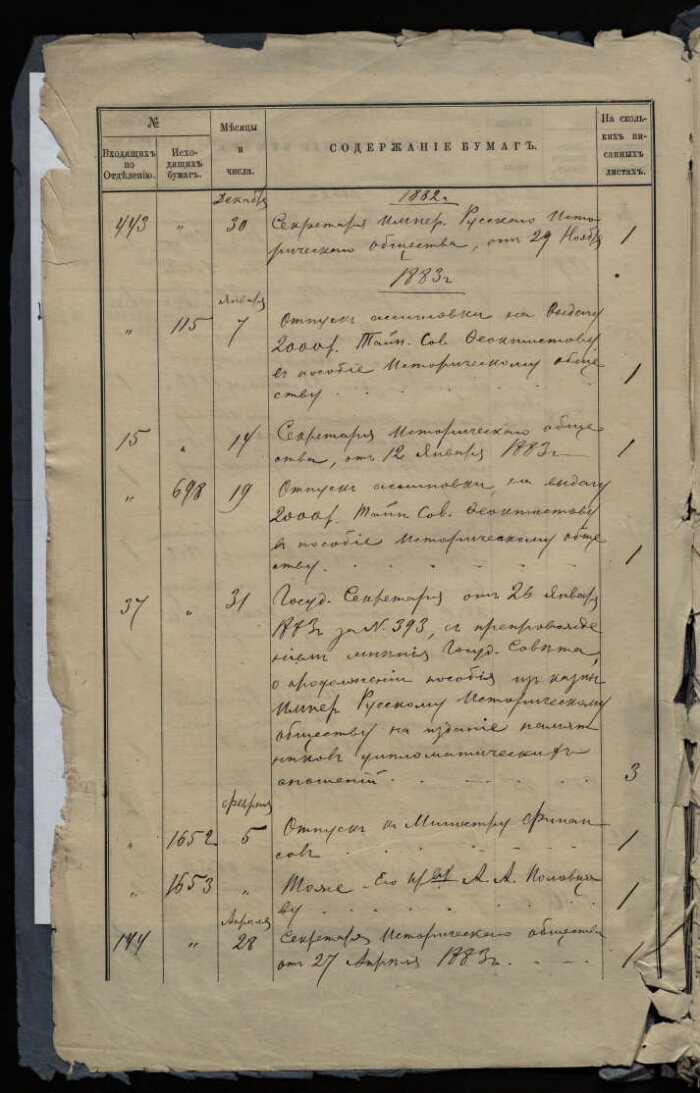 №
Входящихъ по Отдѣленію.
Исходящихъ бумагъ.
Мѣсяцы и числа.
СОДЕРЖАНІЕ БУМАГЪ.
На сколькихъ писанныхъ листахъ.
Декабря
1882 г.
443 " 30 Секретаря Импер. Русскаго Исто-
рическаго общества, отъ 29 Ноября 1
1883 г
Января
" 115 7 Отпускъ ассигновки на выдачу
2000 р. Тайн. Сов. Ѳеоктистову
въ пособіе Историческому обще-
ству 1
15 " 14 Секретаря Историческаго обще
ства, отъ 12 Января 1883 г 1
" 698 19 Отпускъ ассигновки, на выдачу
2000 р. Тайн Сов. Ѳеоктистову
въ пособіе Историческому обще
ству. 1
37 " 31 Госуд. Секретаря отъ 26 Января
1883 г за N. 393, съ препровожде
ніемъ мнѣнія Госуд. Совѣта,
о продолженіи пособія изъ казны
Импер Русскому Историческому
обществу на изданіе памят
никовъ дипломатическихъ
сношеній. 3
Февраля
" 1652 5 Отпускъ къ Министру Финан
совъ 1
" 1653 " Тоже Его Пр-ву А. А. Половцо
ву 1
Апрѣля
144 " 28 Секретаря Историческаго общества
отъ 27 Апрѣля 1883 г. 1